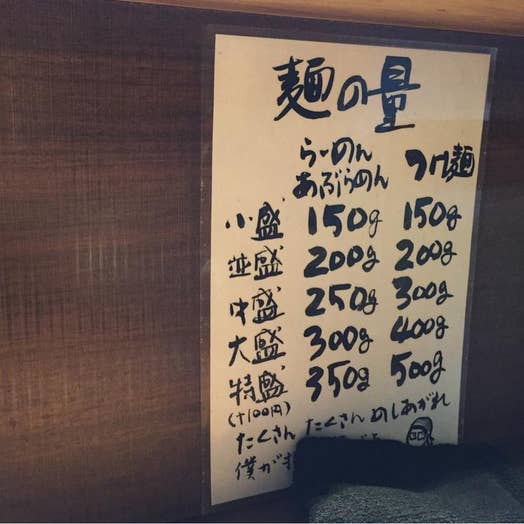 麺の量
らーめん
あぶらめん つけ麺
小盛 150g 150g
並盛 200g 200g
中盛 250g 300g
大盛 300g 400g
特盛 350g 500g
(+100円)
たくさん たくさん めしあがれ
僕が